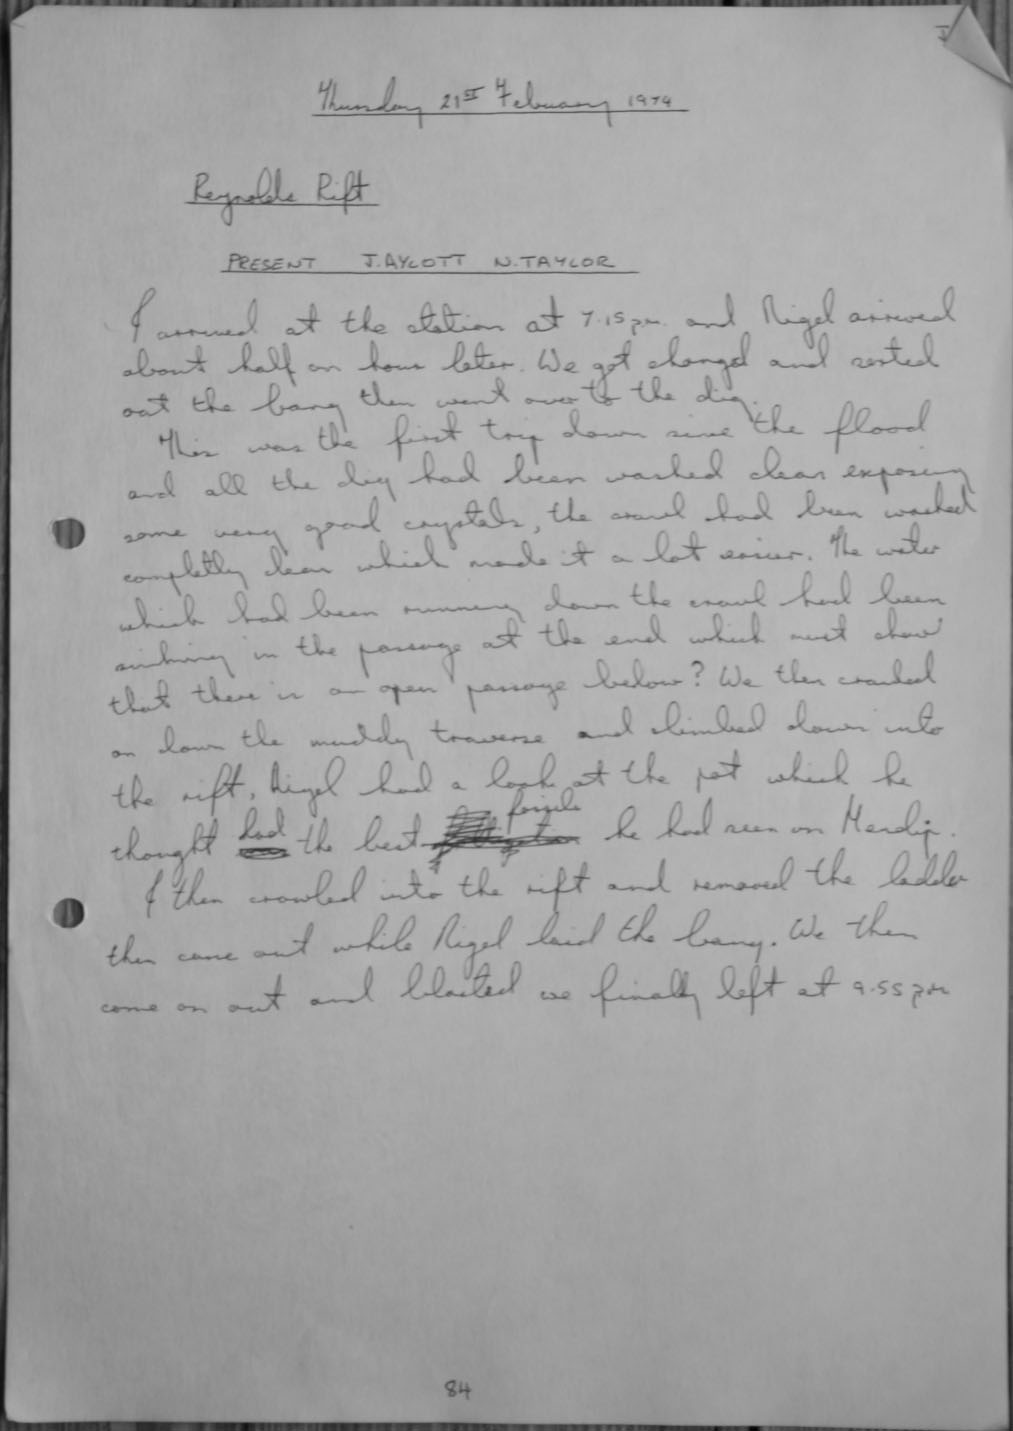 Thursday 21ST February 1974
Reynolds Rift
PRESENT J.AYLOTT N.TAYLOR
I arrived at the station at 7.15pm. and Nigel arrived
about half an hour later. We got changed and sorted
out the bang then went over to the dig.
This was the first trip down since the flood
and all the dig had been washed clean exposing
some very good crystals, the crawl had been washed
completly clean which made it a lot easier. The water
which had been running down the crawl had been
sinking in the passage at the end which must show
that there is an open passage below? We then crawled
on down the muddy traverse and climbed down into
the rift, Nigel had a look at the pot which he
thought had the best fossils he had seen on Mendip.
I then crawled into the rift and removed the ladder
then came out while Nigel laid the bang. We then
come on out and blasted we finally left at 9.55pm
84